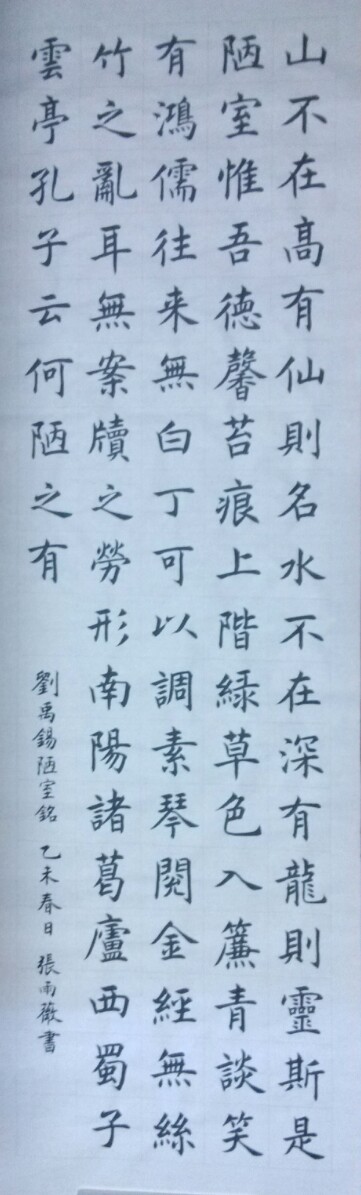 山不在高有仙則名水不在深有龍則靈斯是
陋室惟吾德馨苔痕上階緑草色入簾青談笑
有鴻儒往来無白丁可以調素琴閱金經無絲
竹之亂耳無案牘之勞形南陽諸葛廬西蜀子
雲亭孔子云何陋之有
劉禹錫陋室銘 乙未春日 張雨薇書